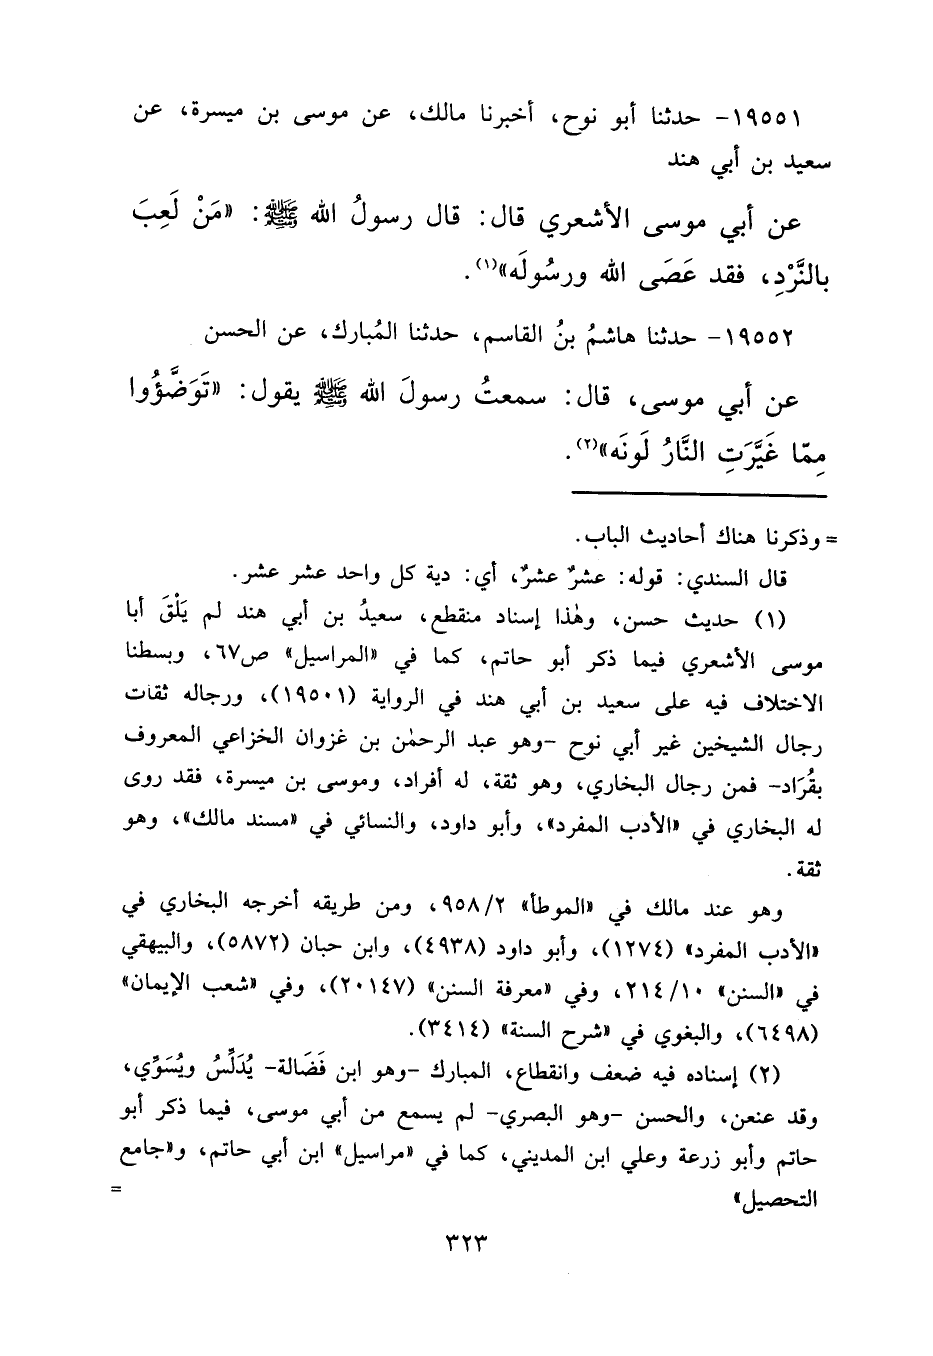 ١٩٥٥١- حدثنا أبو نوح، أخبرنا مالك، عن موسى بن ميسرة، عن
سعيد بن أبي هند
عن أبي موسى الأشعري قال: قال رسولُ الله ﷺ: «مَنْ لَعِبَ
بالنَّرْدِ، فقد عَصَى الله ورسُولَه»(١).
١٩٥٥٢- حدثنا هاشمُ بنُ القاسم، حدثنا المُبارك، عن الحسن
عن أبي موسى، قال: سمعتُ رسولَ الله ﷺ يقول: «تَوَضَّؤُوا
مِمّا غَيَّرَتِ النَّارُ لَونَه»(٢).
= وذكرنا هناك أحاديث الباب.
قال السندي: قوله: عشرٌ عشرٌ، أي: دية كل واحد عشر عشر.
(١) حديث حسن، وهٰذا إسناد منقطع، سعيدُ بن أبي هند لم يَلْقَ أبا
موسى الأشعري فيما ذكر أبو حاتم، كما في «المراسيل» ص٦٧، وبسطنا
الاختلاف فيه على سعيد بن أبي هند في الرواية (١٩٥٠١)، ورجاله ثقات
رجال الشيخين غير أبي نوح -وهو عبد الرحمٰن بن غزوان الخزاعي المعروف
بقُرَاد- فمن رجال البخاري، وهو ثقة، له أفراد، وموسى بن ميسرة، فقد روى
له البخاري في «الأدب المفرد»، وأبو داود، والنسائي في «مسند مالك»، وهو
ثقة.
وهو عند مالك في «الموطأ» ٩٥٨/٢، ومن طريقه أخرجه البخاري في
«الأدب المفرد» (١٢٧٤)، وأبو داود (٤٩٣٨)، وابن حبان (٥٨٧٢)، والبيهقي
في «السنن» ٢١٤/١٠، وفي «معرفة السنن» (٢٠١٤٧)، وفي «شعب الإيمان»
(٦٤٩٨)، والبغوي في «شرح السنة» (٣٤١٤).
(٢) إسناده فيه ضعف وانقطاع، المبارك -وهو ابن فَضَالة- يُدَلِّسُ ويُسَوِّي،
وقد عنعن، والحسن -وهو البصري- لم يسمع من أبي موسى، فيما ذكر أبو
حاتم وأبو زرعة وعلي ابن المديني، كما في «مراسيل» ابن أبي حاتم، و«جامع
التحصيل» =
٣٢٣